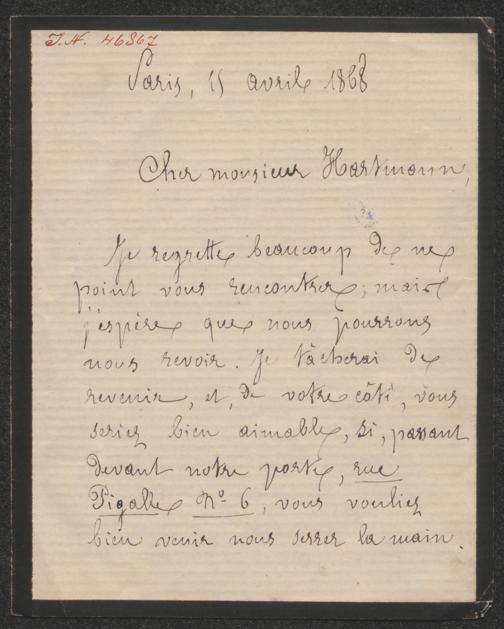 I.N. 46867
Paris, 15 avril 1868
Cher monsieur Hartmann,
Je regrette beaucoup de ne
point vous rencontrer; mais
j'espère que nous pourrons
nous revoir. Je tâcherai de
revenir, et, de votre côté, vous
seriez bien aimable, si, passant
devant notre porte, rue
Pigalle No 6, vous vouliez
bien venir nous serrer la main.